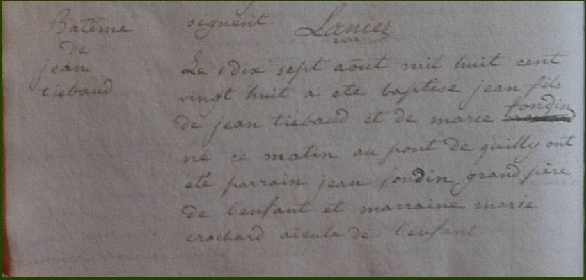 Batême
de
jean
tiebaud
signent Lanier
Le dix sept août mil huit cent
vinst huit a ete baptise jean fils
de jean tiebaud et de marie fondin
né ce matin au pont de quilly ont
été parrain jean fondin grand père
de l'enfant et marraine marie
crochard aëeule de l'enfant